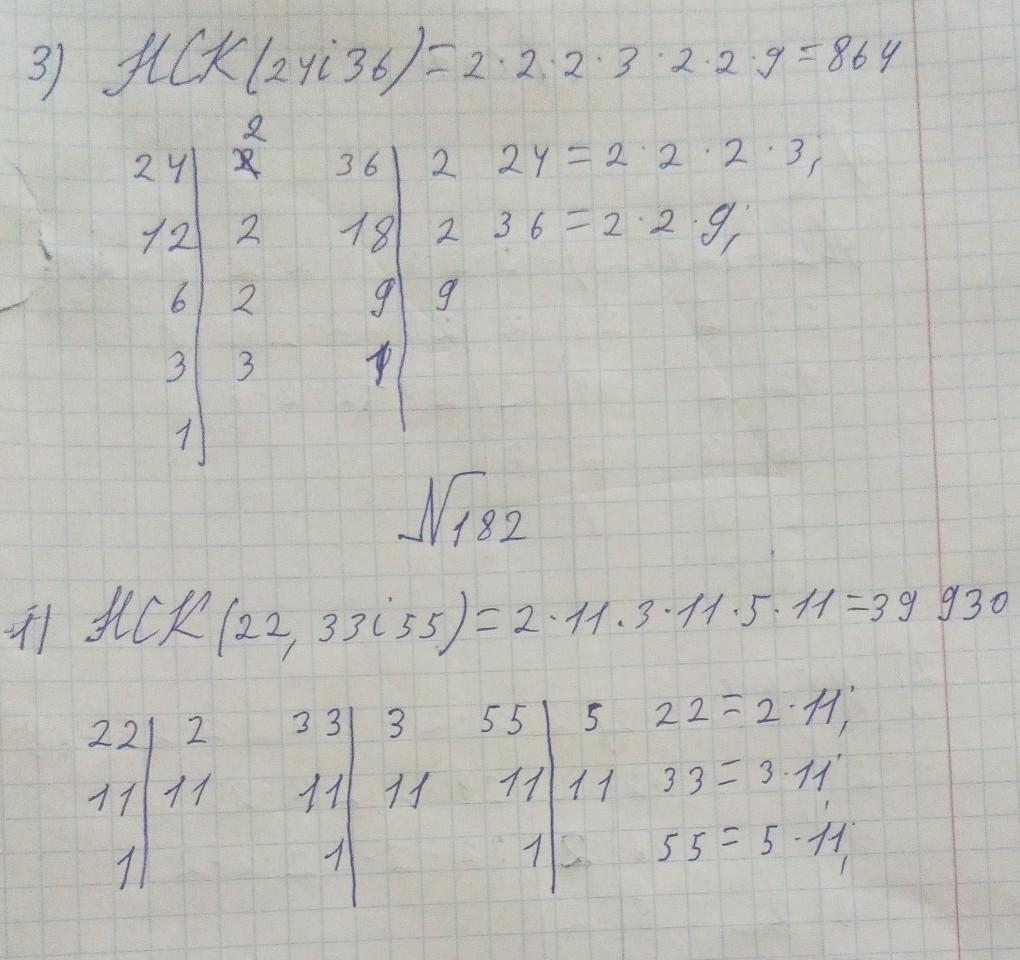 3) НСК(24і36)=2·2·2·3·2·2·9=864
24 2 36 2 24=2·2·2·3;
12 2 18 2 36=2·2·9;
6 2 9 9
3 3 1
1
№182
1) НСК(22, 33і55)=2·11·3·11·5·11=39 930
22 2 33 3 55 5 22=2·11;
11 11 11 11 11 11 33=3·11;
1 1 1 55=5·11;